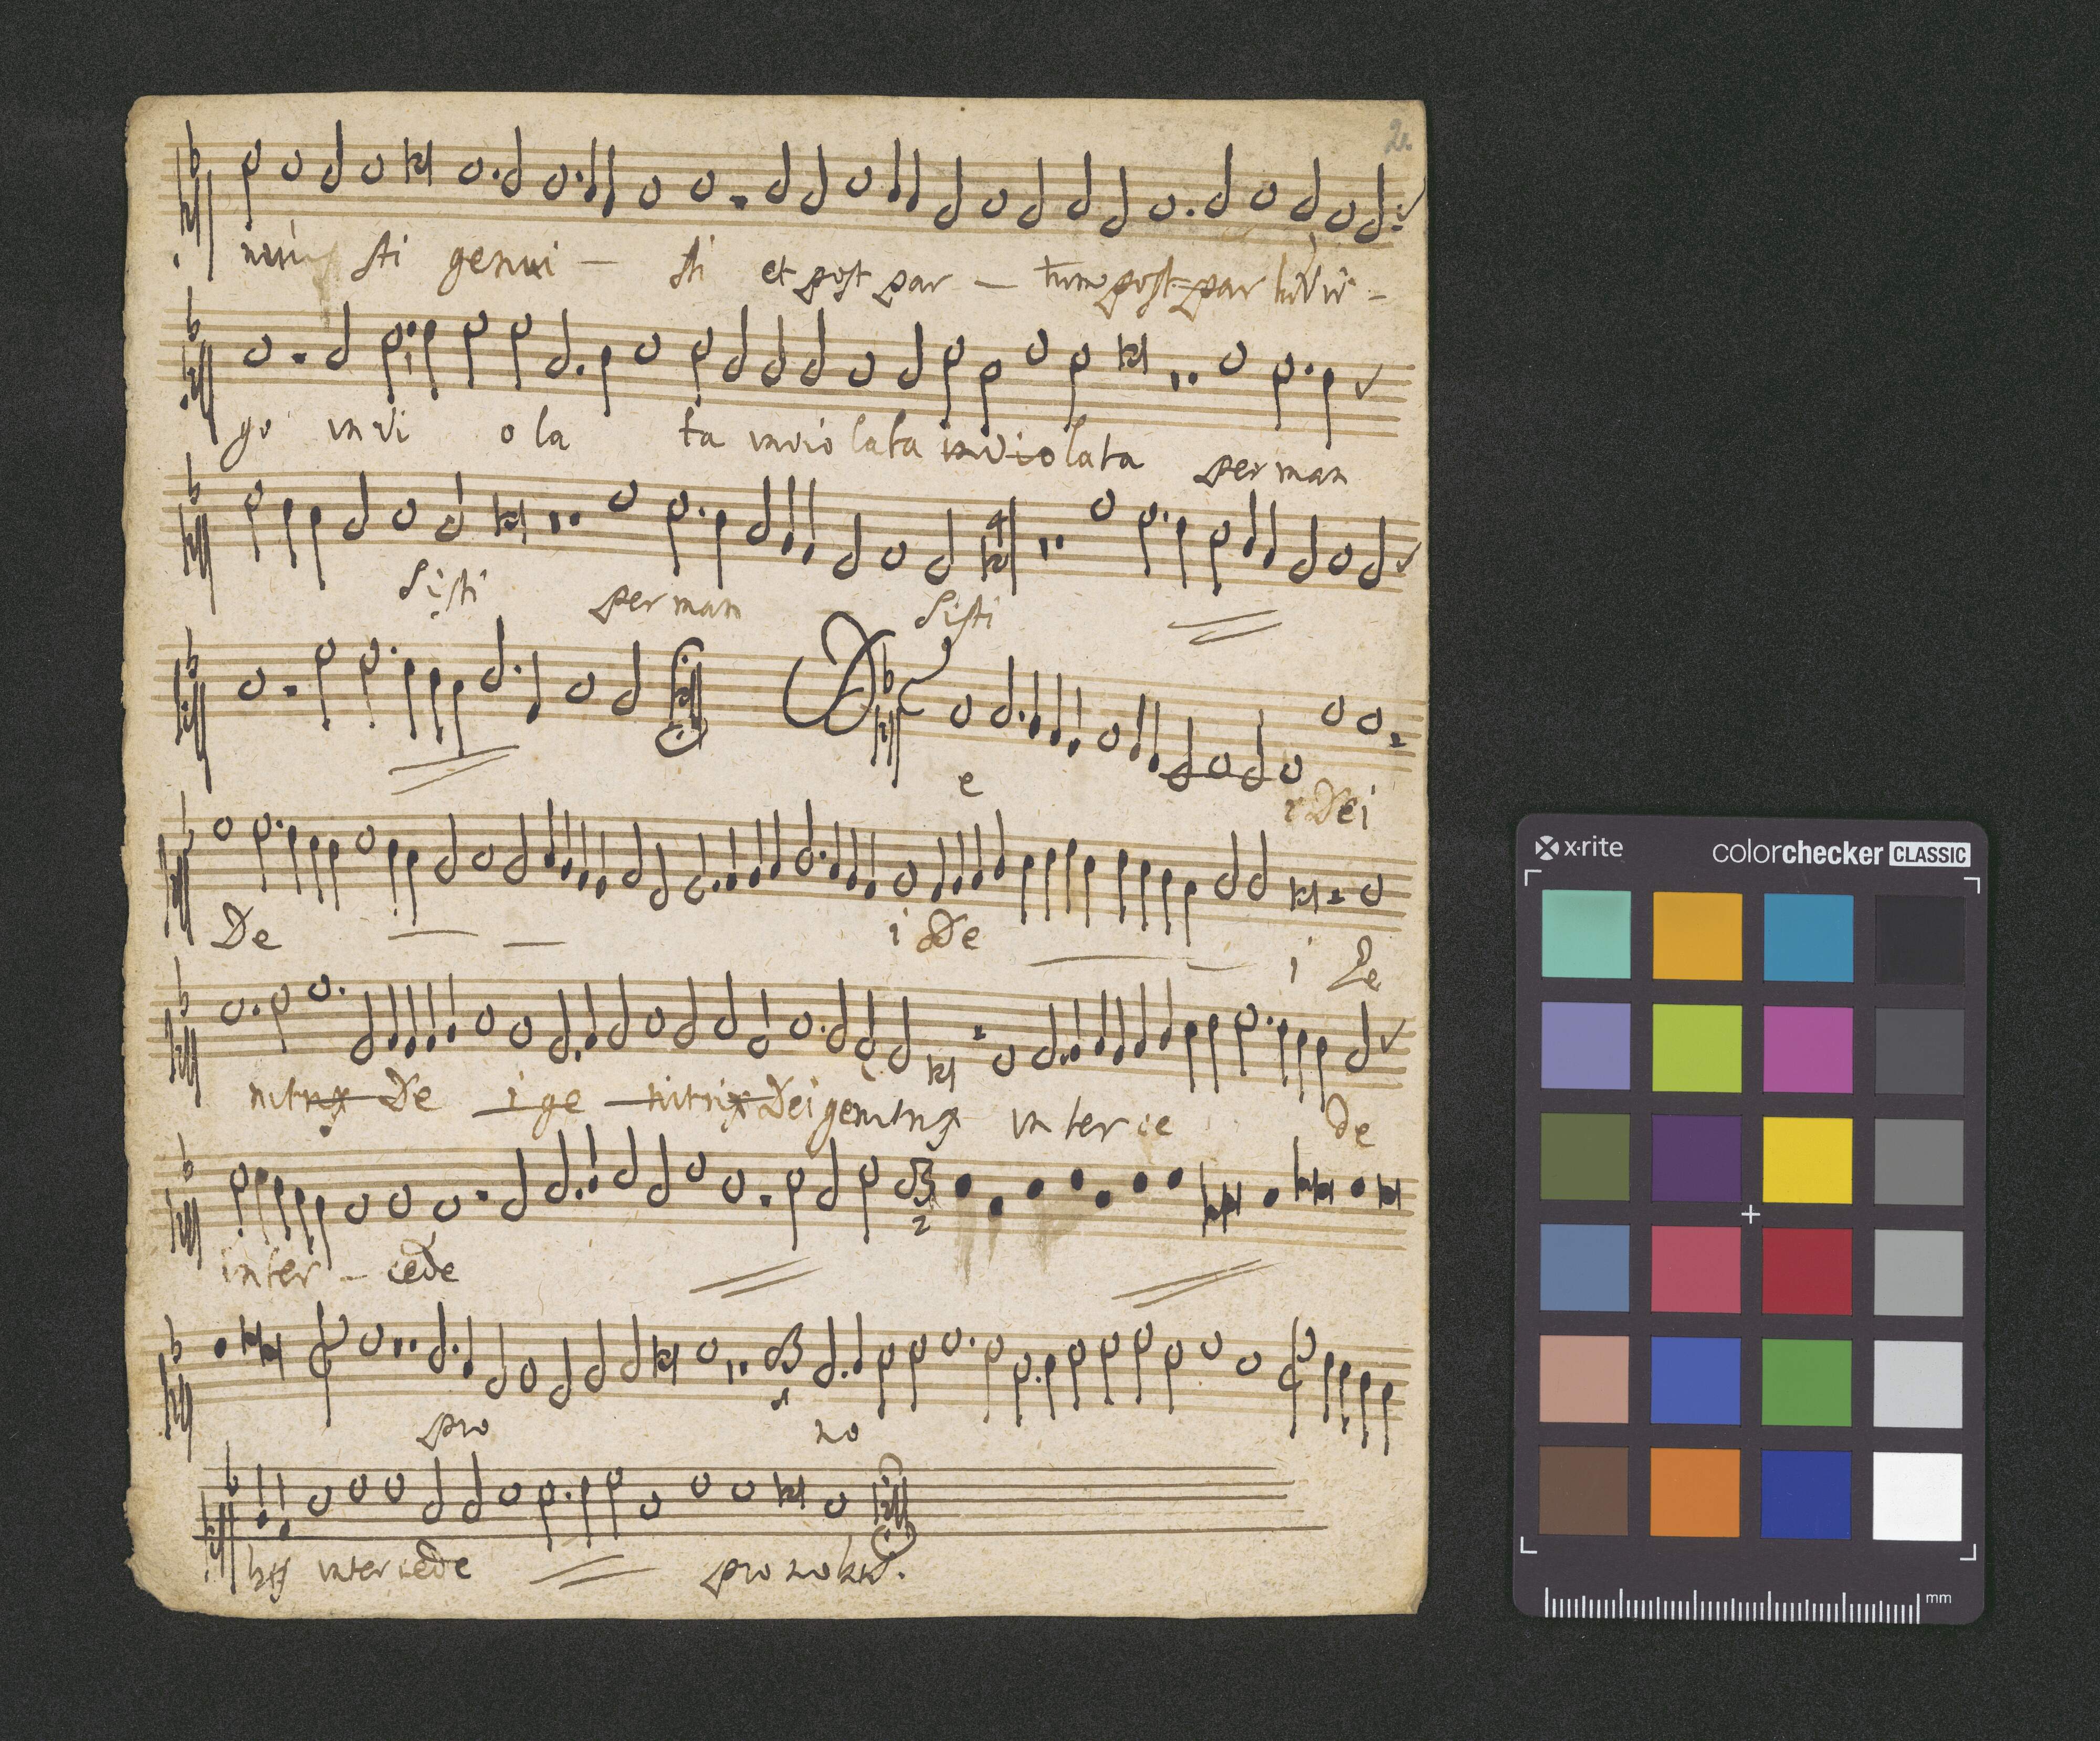 2.
sti genui – sti et post par – tum post par tū Vir –
go in vi o la ta inviolata inviolata per man
sisti per man sisti
e
Dei
De i De i De
nitrix De i ge nitrix Dei genitrix in ter ce de
inter – cede
pro no
bis intercede pro nobis.
x·rite colorchecker CLASSIC
mm